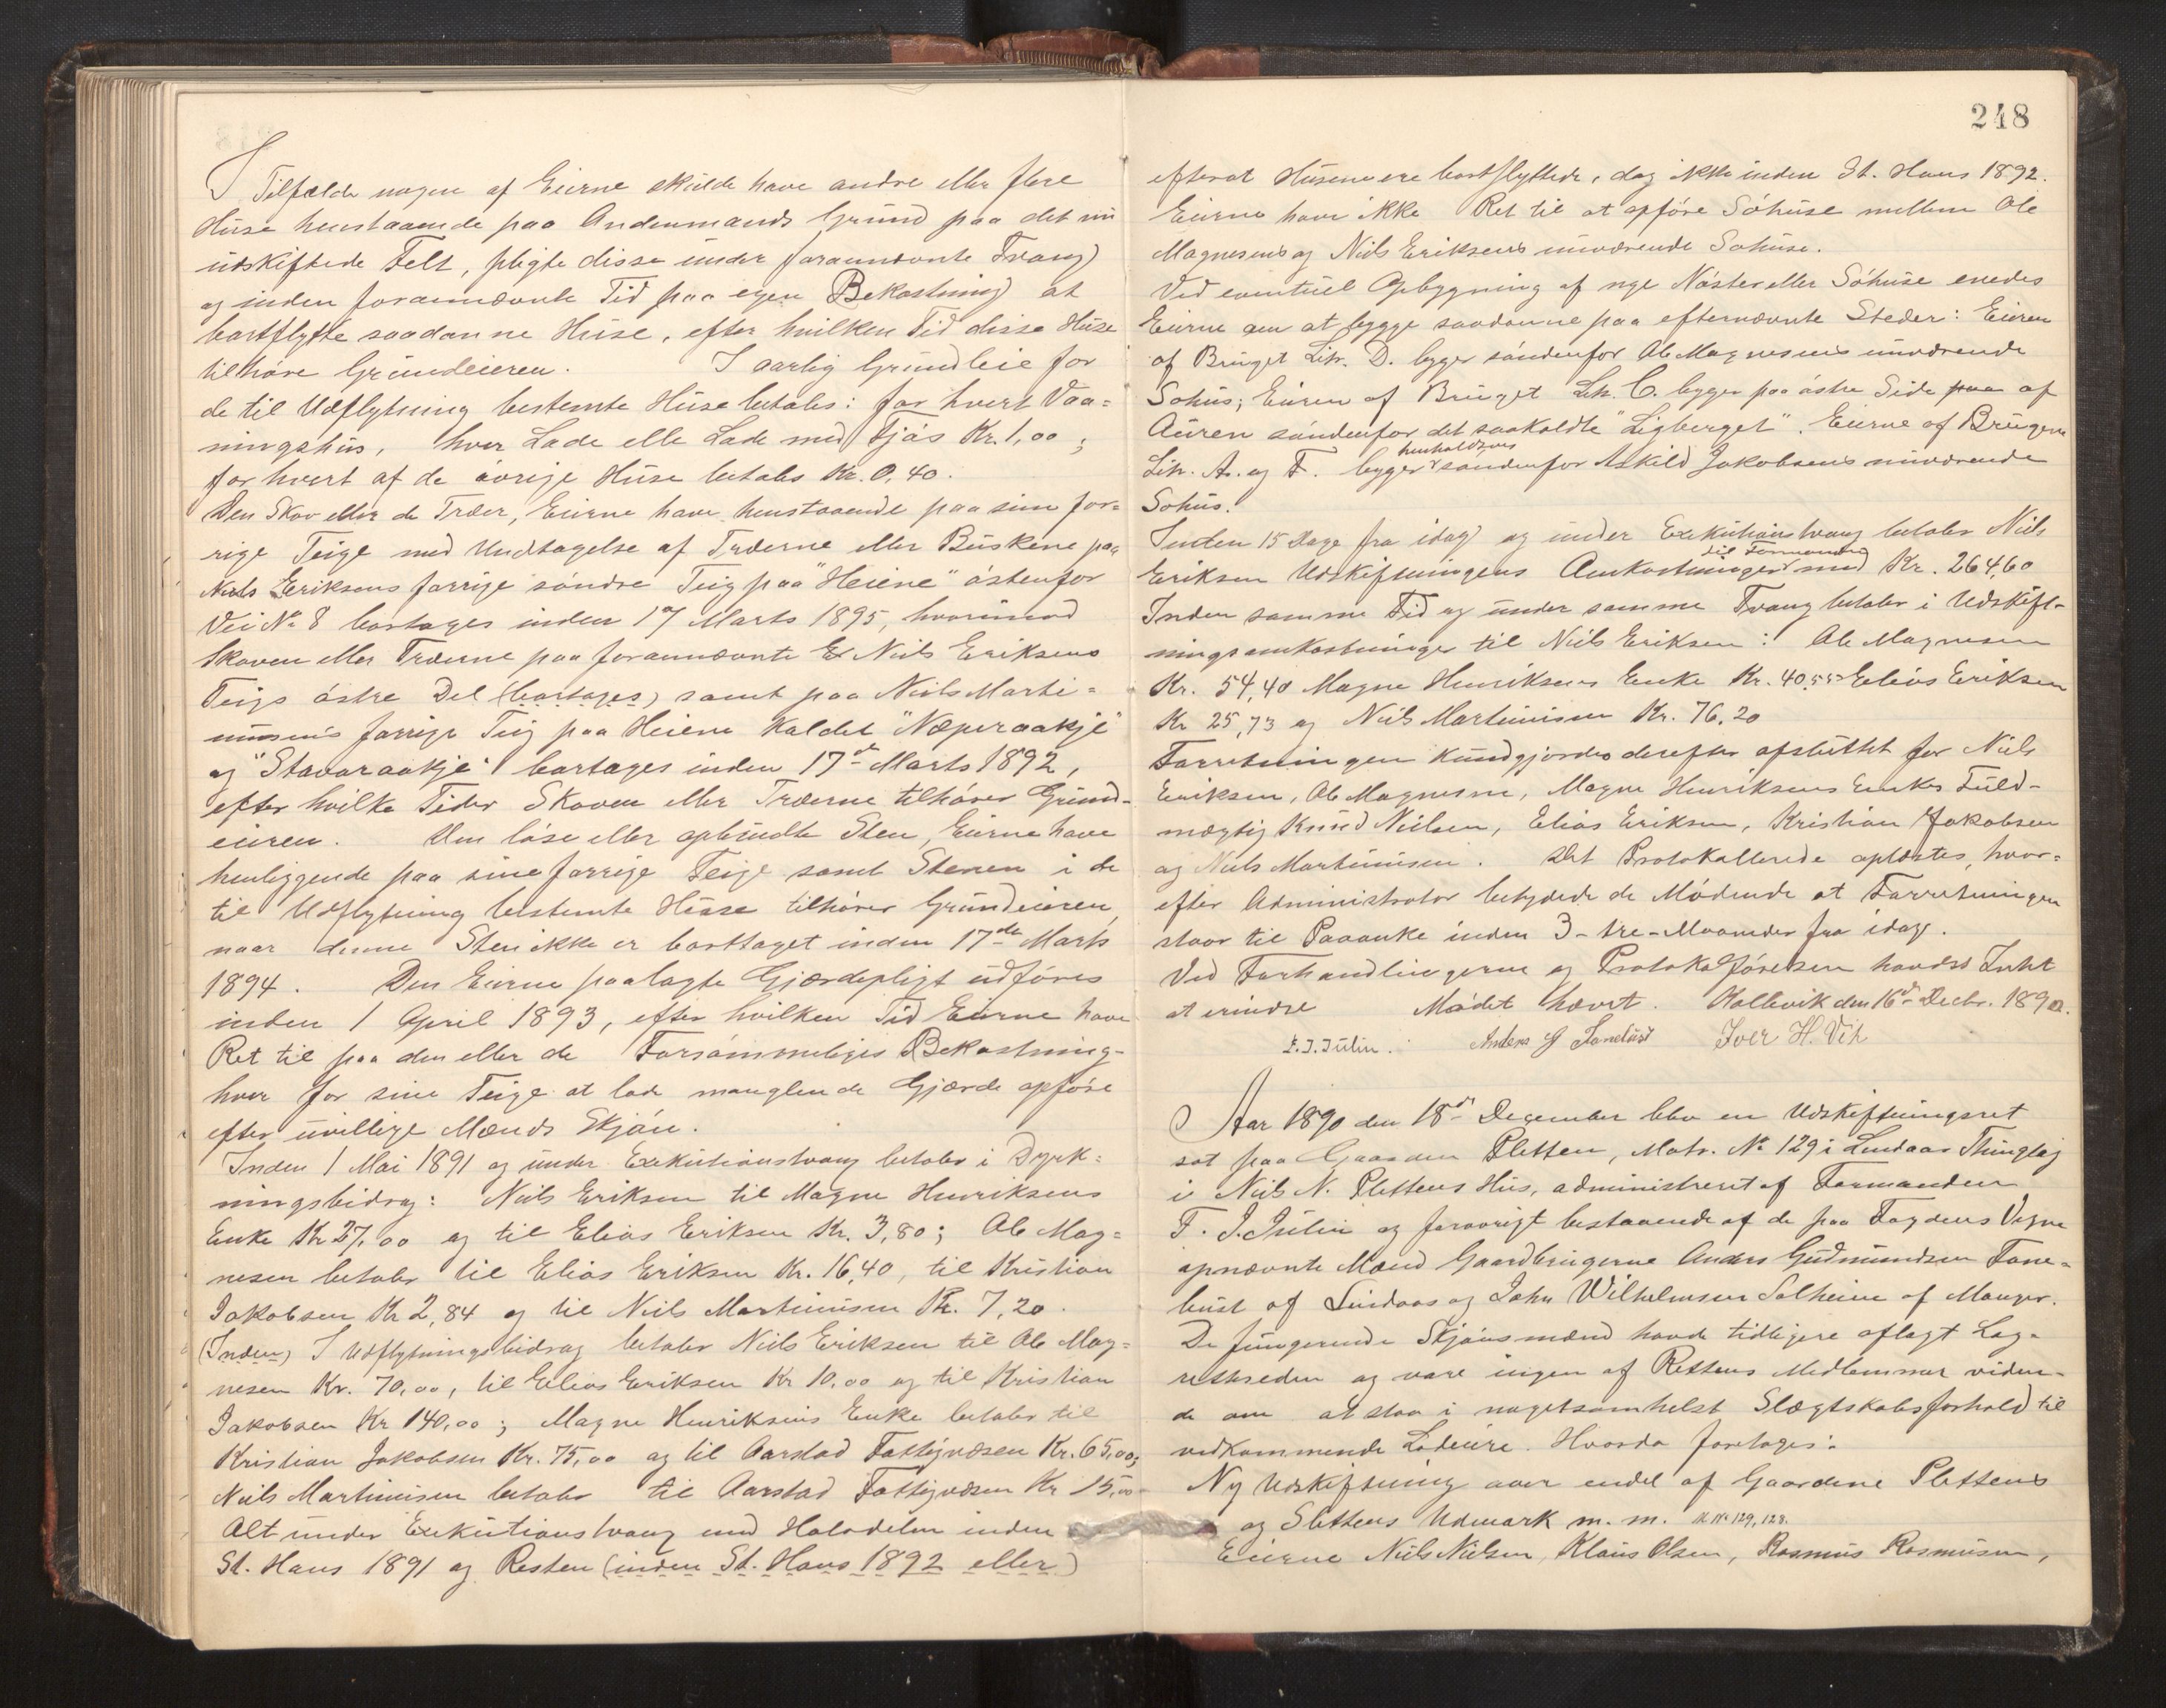 I Tilfælde nogen af Eierne skulde have andre eller flere
Huse henstaaende paa Andenmands Grund paa det nu
udskiftede Felt, pligte disse under forannævnte Tvang
og inden forannævnte Tid paa egen Bekostning at
bortflytte saadanne Huse, efter hvilken Tid disse Huse
tilhøre Grundeieren. I aarlig Grundleie for
de til Udflytning bestemte Huse betales: for hvert Vaa=
ningshus, hver Lade elle Lade med Fjøs Kr. 1,00;
for hvert af de øvrige Huse betales Kr. 0,40.
Den Skov eller de Træer, Eierne have henstaaende paa sine for=
rige Teige med Undtagelse af Træerne eller Buskene paa
Niels Eriksens forrige søndre Teig paa "Heiene" østenfor
Vei No 8 bortages inden 17 Marts 1895, hvorimod
Skoven eller Træerne paa forannævnte Niels Eriksens
Teigs østre Del (bortages) samt paa Niels Marti=
nusens forrige Teig paa Heiene kaldet "Næperaakje"
og "Stavaraakje" bortages inden 17de Marts 1892,
efter hvilke Tider Skoven eller Træerne tilhører Grund-
eieren. Den løse eller opbrudte Sten, Eierne have
henliggende paa sine forrige Teige samt Stenen i de
til Udflytning bestemte Huse tilhører Grundeieren,
naar denne Sten ikke er borttaget inden 17de Marts
1894. Den Eierne paalagte Gjærdepligt udføres
inden 1 April 1893, efter hvilken Tid Eierne have
Ret til paa den eller de Forsømmeliges Bekostning
hver for sine Teige at lade manglende Gjærde opføre
efter uvillige Mænds Skjøn.
Inden 1 Mai 1891 og under Exekutionstvang betaler i Dyrk=
ningsbidrag: Niels Eriksen til Magne Henriksens
Enke Kr 27,00 og til Elias Eriksen Kr. 3,80; Ole Mag=
nesen betaler til Elias Eriksen Kr. 16,40, til Kristian
Jakobsen Kr 2,84 og til Niels Martinusen Kr. 7,20.
(Inden) I Udflytningsbidrag betaler Niels Eriksen til Ole Mag=
nesen Kr. 70,00, til Elias Eriksen Kr 10,00 og til Kristian
Jakobsen Kr 140,00; Magne Henriksens Enke betaler til
Kristian Jakobsen Kr. 75,00 og til Aarstad Fattigvæsen Kr. 65,00;
Niels Martinusen betaler til Aarstad Fattigvæsen Kr 15,00
Alt under Exekutionstvang med Halvdelen inden
St. Hans 1891 og Resten (inden St. Hans 1892 eller)
248
efterat Husene ere bortflyttede, dog ikke inden St. Hans 1892.
Eierne have ikke Ret til at opføre Søhuse mellem Ole
Magnesens og Niels Eriksens nuværende Søhuse.
Ved eventuel Opbygning af nye Nøster eller Søhuse enedes
Eierne om at bygge saadanne paa efternævnte Steder: Eieren
af Bruget Litr. D. bygger søndenfor Ole Magnesens nuværende
Søhus; Eieren af Bruget Litr. C. bygger paa østre Side paa af
Auren søndenfor det saakaldte "Ligberget". Eierne af Brugene
henholdsvis
Litr. A. og F. bygger søndenfor Askild Jakobsens nuværende
Søhus.
Inden 15 Dage fra idag og under Exekutionstvang betaler Niels
til Formanden
Eriksen Udskiftningens Omkostninger med Kr. 264,60
Inden samme Tid og under samme Tvang betaler i Udskift-
ningsomkostninger til Niels Eriksen: Ole Magnesen
Kr. 54,40 Magne Henriksens Enke Kr. 40,55 Elias Eriksen
Kr 25,73 og Niels Martinusen Kr. 76,20
Forretningen kundgjordes derefter afsluttet for Niels
Eriksen, Ole Magnesen, Magne Henriksens Enkes Fuld-
mægtig Knud Nielsen, Elias Eriksen, Kristian Jakobsen
og Niels Martinusen. Det Protokollerede oplæstes, hvor=
efter Administrator betydede de Mødende at Forretningen
staar til Paaanke inden 3-tre-Maaneder fra idag.
Ved Forhandlingerne og Protokolførelsen havdes Intet
at erindre Mødet hævet. Kollevik den 16de Decbr. 1890.
F. J. Julin. Anders G Tonebust Iver H. Vik
Aar 1890 den 18de December blev en Udskiftningsret
sat paa Gaarden Pletten, Matr. No 129 i Lindaas Thinglag
i Niels N. Plettens Hus, administreret af Formanden
F. J. Julin og forøvrigt bestaaende af de paa Fogdens Vegne
opnævnte Mænd Gaardbrugerne Anders Gudmundsen Tone=
bust af Lindaas og John Wilhelmsen Solheim af Manger.
De fungerende Skjønsmænd havde tidligere aflagt Lag-
retseden og vare ingen af Rettens Medlemmer viden-
de om at staa i nogetsomhelst Slægtskabsforhold til
vedkommende Lodeiere. Hvorda foretages:
Ny Udskiftning over endel af Gaardene Plettens
og Slettens Udmark m. m. M No 129, 128.
Eierne Niels Nielsen, Klaus Olsen, Rasmus Rasmusen,